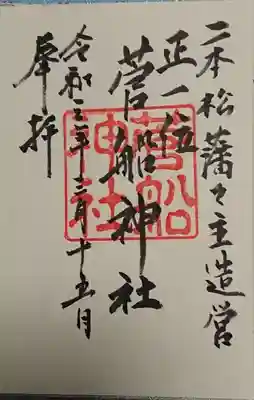 二本松藩々主造営
正一位
菅船神社
菅船神社
令和三年三月十五日
奉拝